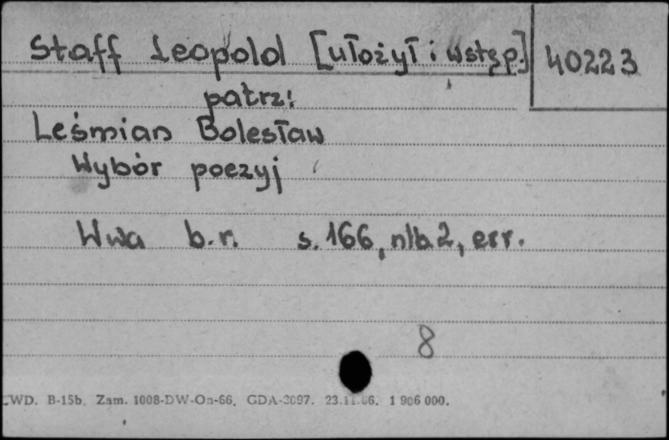 Staff Leopold [ułożył i wstęp.] 40223
patrz:
Leśmian Bolesław
Wybór poezyj
Wwa b.r. s. 166, nlb. 2, err.
8
WD. B-15b. Zam. 1008-DW-On-66. GDA-3097. 23.11.66. 1 906 000.